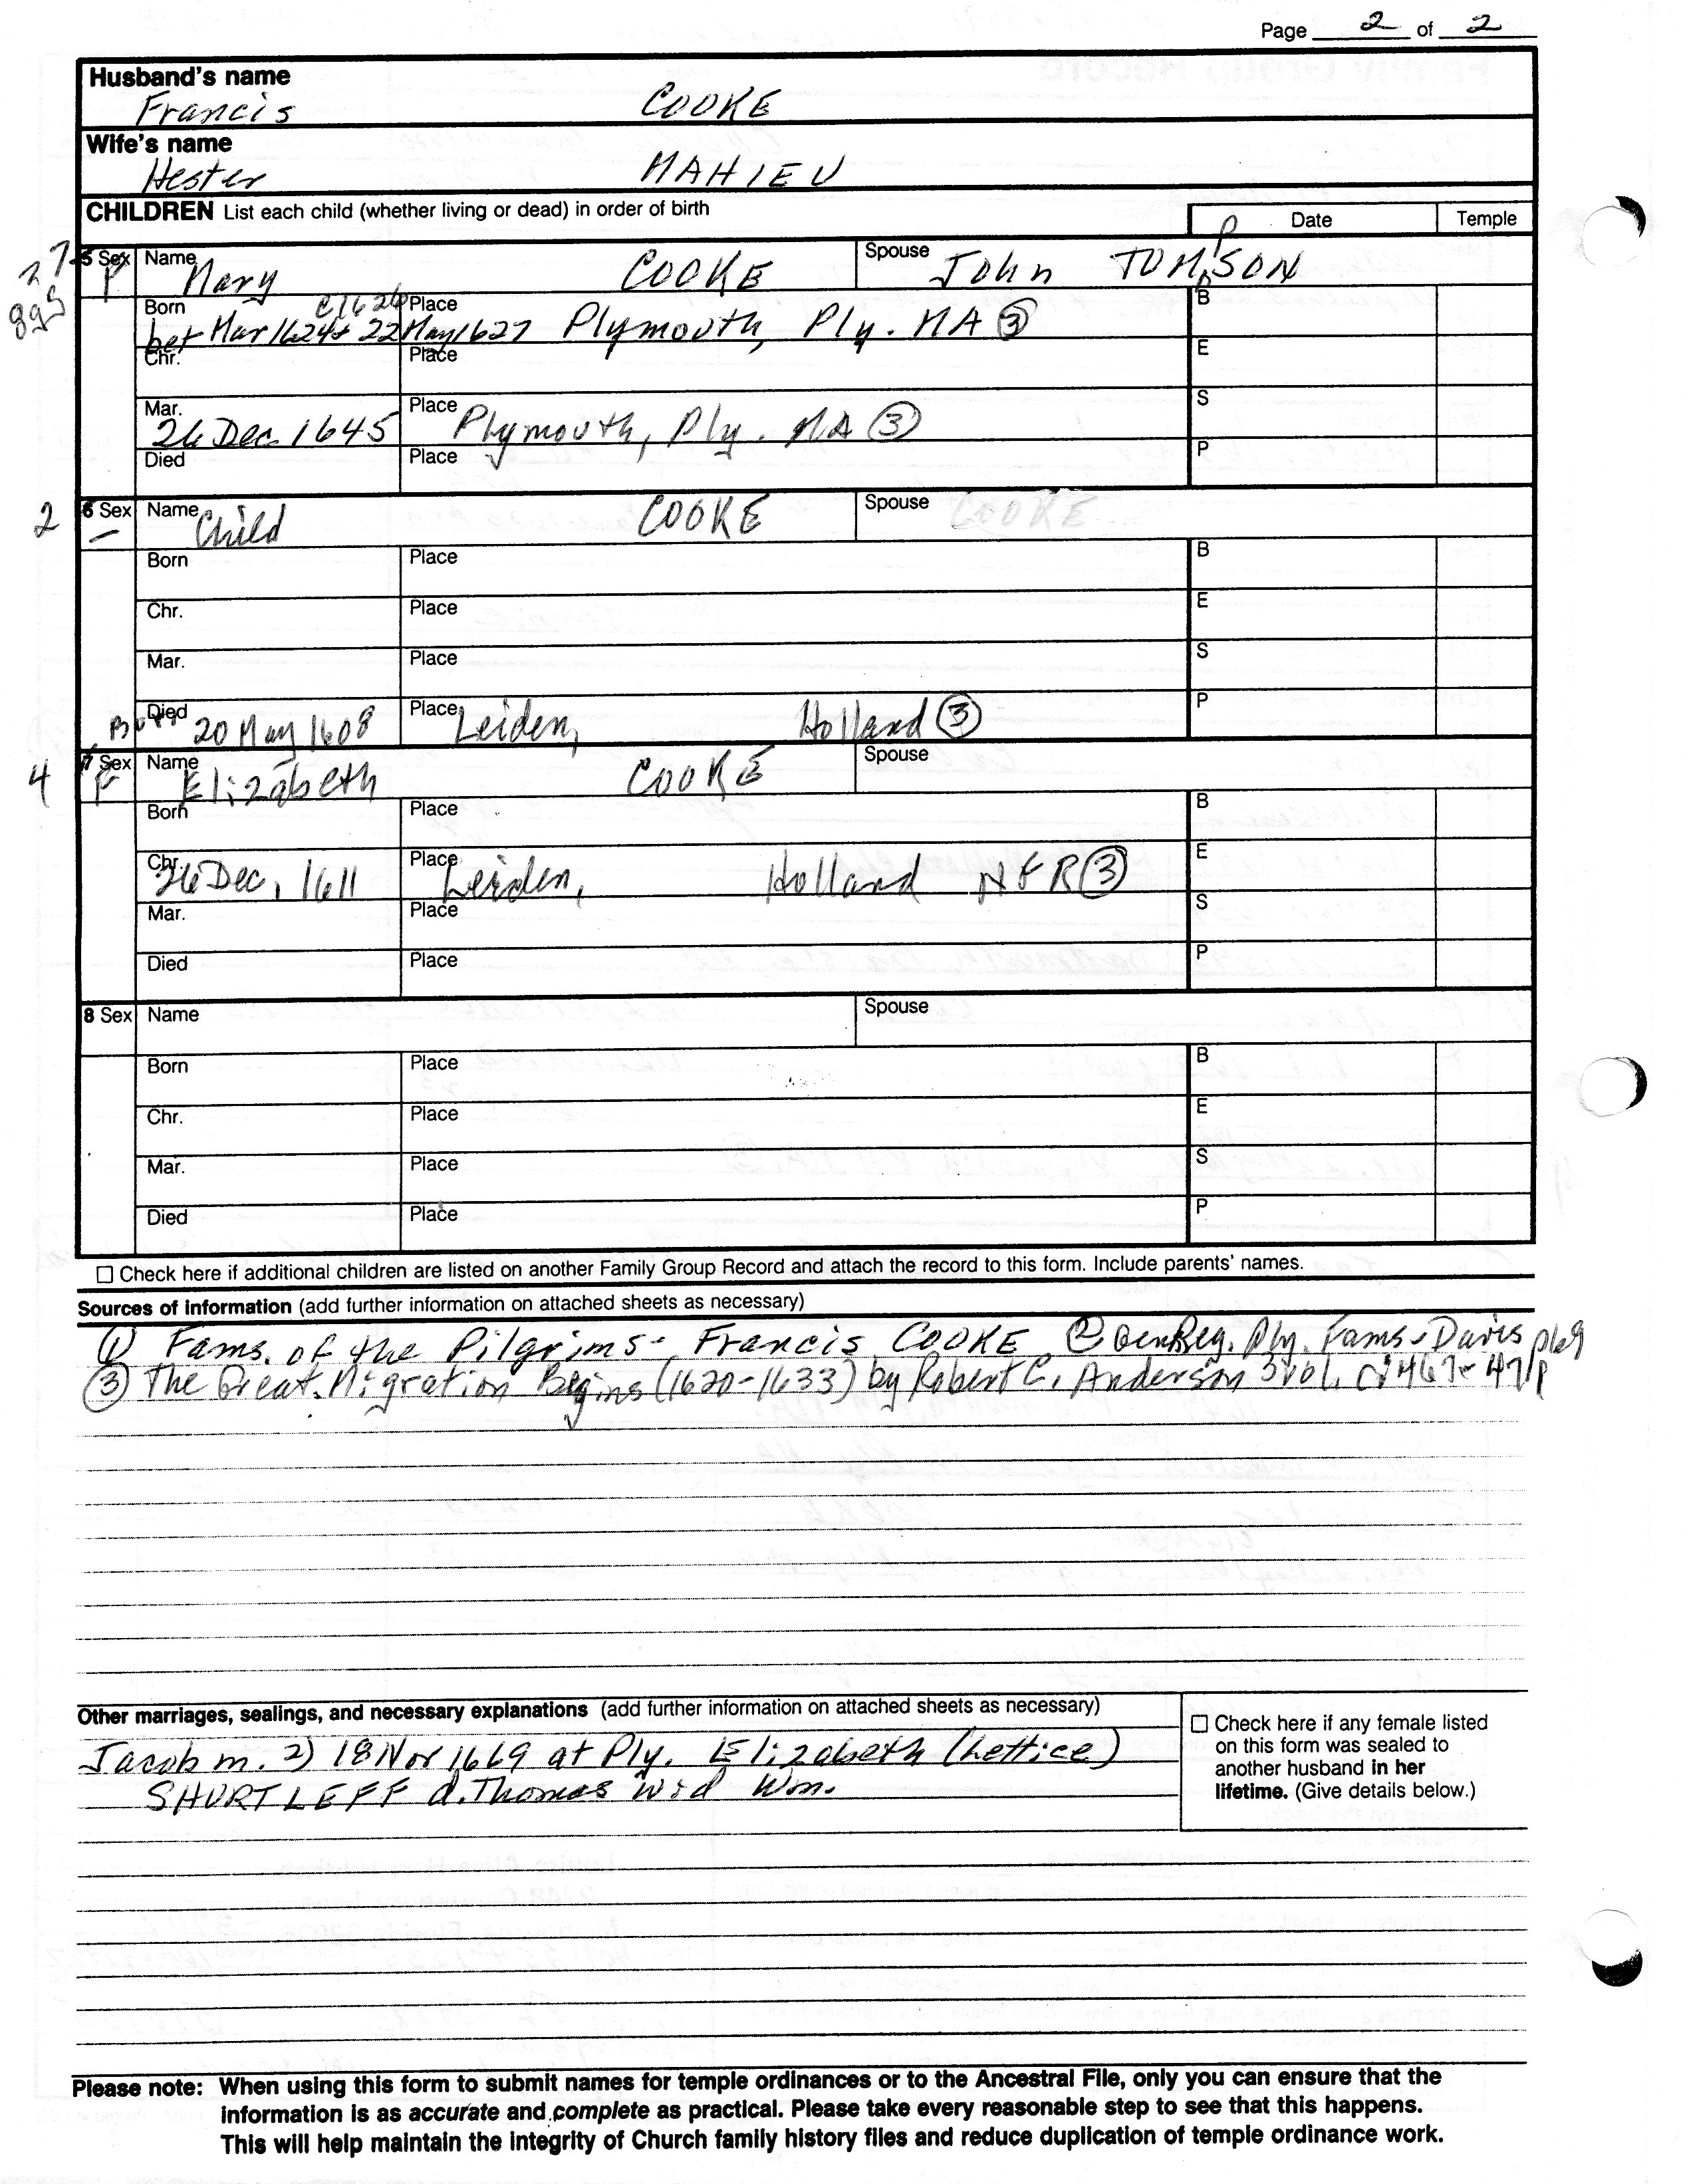 Page 2 of 2
Husband's name
Francis COOKE
Wife's name
Hester MAHIEU
CHILDREN List each child (whether living or dead) in order of birth
Date Temple
5 Sex F Name Mary COOKE Spouse John TOMPSON
Born bet Mar 1624 + 22 May 1627 c1626 Place Plymouth, Ply. MA ③ B
Chr. Place E
Mar. 26 Dec. 1645 Place Plymouth, Ply. MA ③ S
Died Place P
2 6 Sex – Name Child COOKE Spouse
Born Place B
Chr. Place E
Mar. Place S
Bur. Died 20 May 1608 Place Leiden, Holland ③ P
4 7 Sex F Name Elizabeth COOKE Spouse
Born Place B
Chr. 26 Dec. 1611 Place Leiden, Holland ③ E
Mar. Place S
Died Place P
8 Sex Name Spouse
Born Place B
Chr. Place E
Mar. Place S
Died Place P
☐ Check here if additional children are listed on another Family Group Record and attach the record to this form. Include parents' names.
Sources of information (add further information on attached sheets as necessary)
① Fams. of the Pilgrims- Francis COOKE ② GenReg. Ply. Fams - Davis p69
③ The Great Migration Begins (1620-1633) by Robert C. Anderson 3 vol. 467-471
Other marriages, sealings, and necessary explanations (add further information on attached sheets as necessary)
Jacob m. 2) 18 Nov 1669 at Ply. Elizabeth (Lettice)
SHURTLEFF d. Thomas wid Wm.
☐ Check here if any female listed
on this form was sealed to
another husband in her
lifetime. (Give details below.)
Please note: When using this form to submit names for temple ordinances or to the Ancestral File, only you can ensure that the
information is as accurate and complete as practical. Please take every reasonable step to see that this happens.
This will help maintain the integrity of Church family history files and reduce duplication of temple ordinance work.